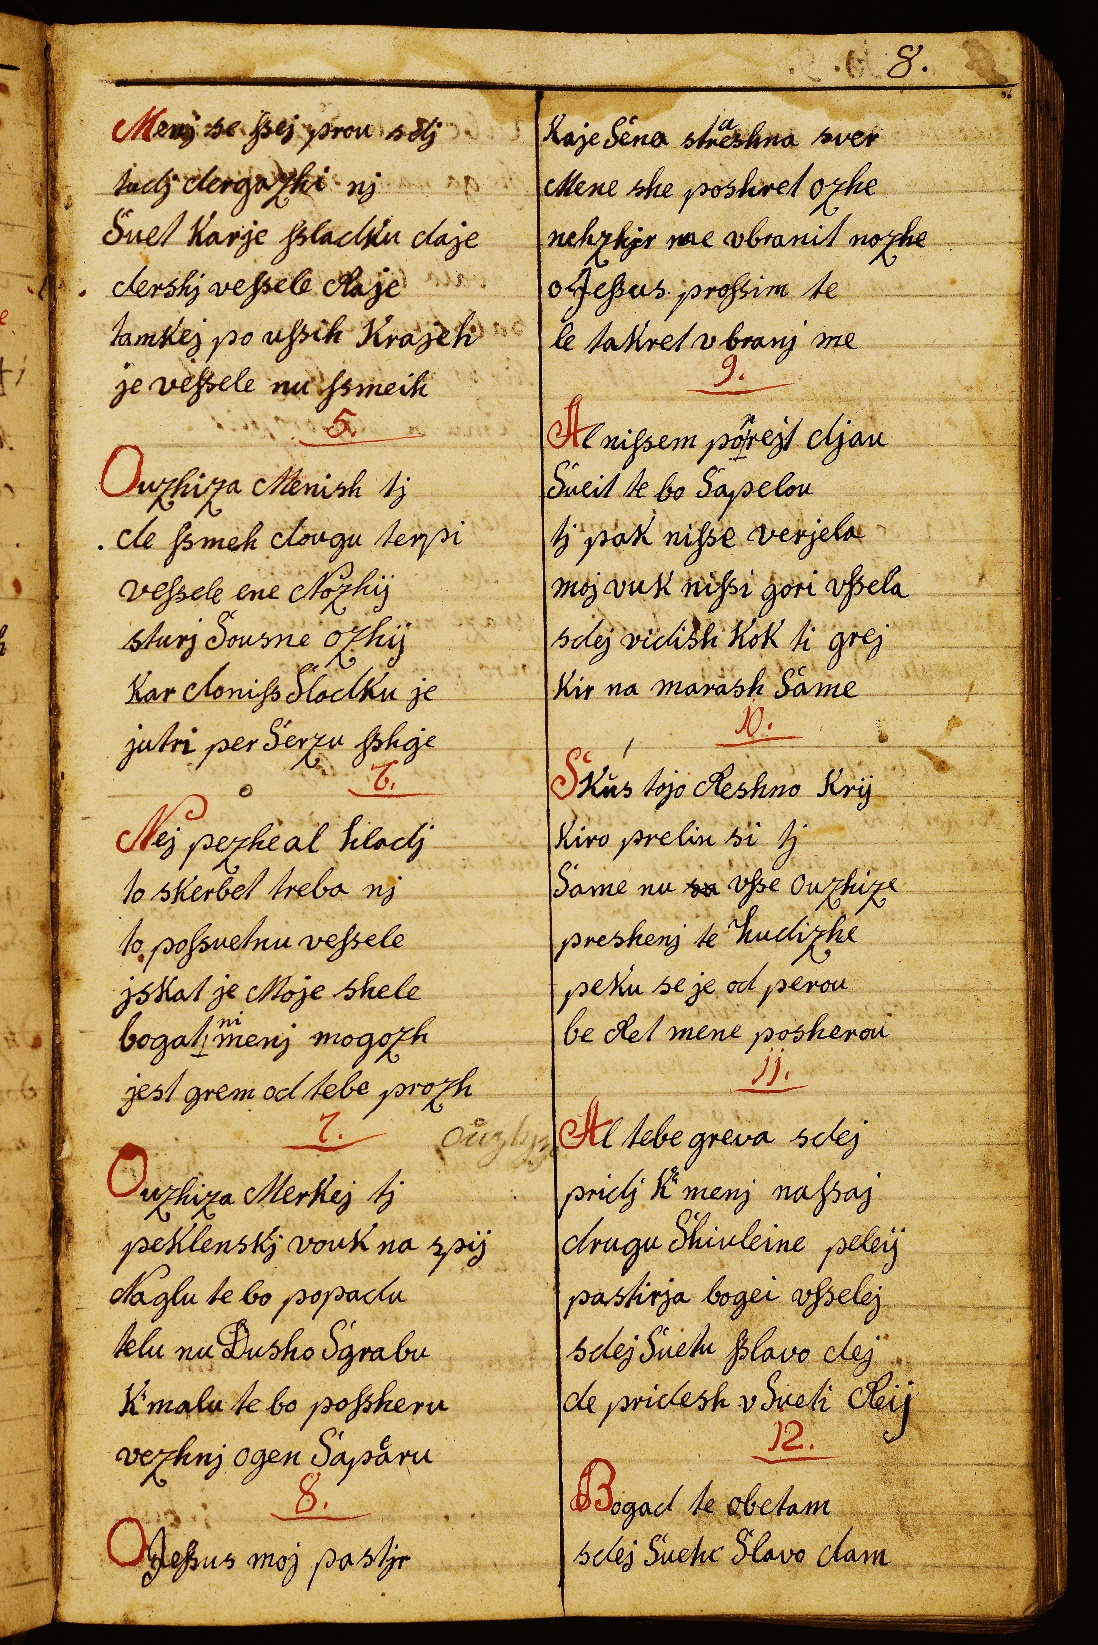 8.
Menj se ſsej prou sdj
tudj dergazhi nj
Suet Karje ſsladku daje
dershj veſsele Raje
tamkej po uſsih Krajeh
je veſsele nu ſsmeih
5.
Ouzhiza Menish tj
de ſsmeh dougu terpi
veſsele ene Nozhij
sturj Sousne ozhij
Kar doniſs Sladku je
jutri per Serzu ſshge
6.
Nej pezhe al hladj
to skerbet treba nj
to poſsuetnu veſsele
jskat je Moje shele
bogat ni menj mogozh
jest grem od tebe prozh
7.
Ouzhiza Merkej tj
peklenskj vouk na spij
Naglu te bo popadu
telu nu Dusho Sgrabu
K'malu te bo poſsheru
vezhnj ogen Saparu
8.
O Jeſsus moj pastjr
Kaje Sena strashna sver
Mene she poshret ozhe
nehzhjer me vbranit nozhe
o Jeſsus proſsim te
le takret vbranj me
9.
Al niſsem porrejt djau
Sueit te bo Sapelou
tj pak niſse verjela
moj vuk niſsi gori vſsela
sdej vidish Kok ti grej
Kir na marash Same
10.
Skus tojo Reshno Krij
Kiro prelin si tj
Same nu vſse ouzhize
preshenj te hudizhe
peku se je od perou
be Ret mene posherou
11.
Al tebe greva sdej
pridj K' menj naſsaj
drugu Shiuleine pelej
pastirja bogei vſselej
sdej Suetu ſslavo dej
de pridesh v Sueti Reij
12.
Bogad te obetam
sdej Suetu Slavo dam